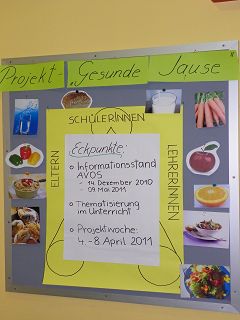 Projekt - „Gesunde Jause"
SCHÜLERINNEN
ELTERN
LEHRERINNEN
Eckpunkte:
Informationsstand
AVOS
- 14. Dezember 2010
- 09. Mai 2011
Thematisierung
im Unterricht
Projektwoche:
4. - 8. April 2011